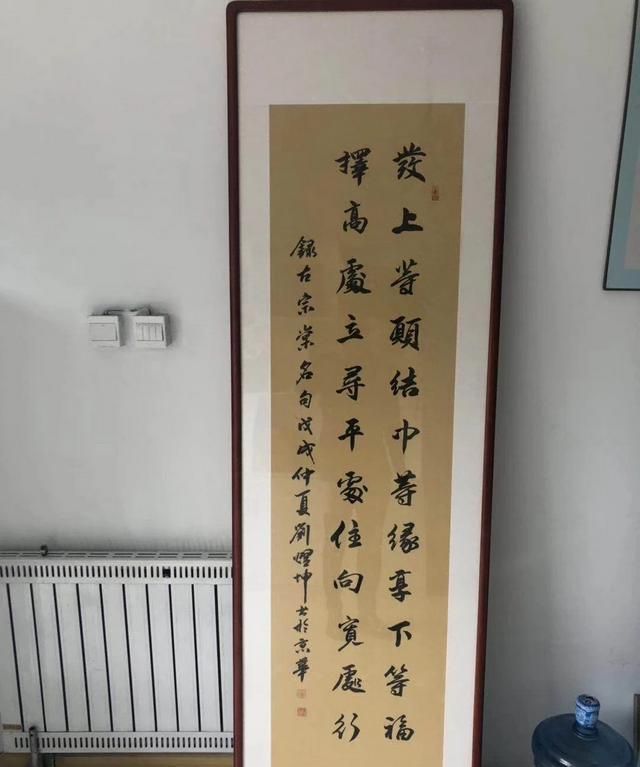 發上等願結中等緣享下等福
擇高處立尋平處住向寬處行
錄左宗棠名句戊戌仲夏劉坤书於京華